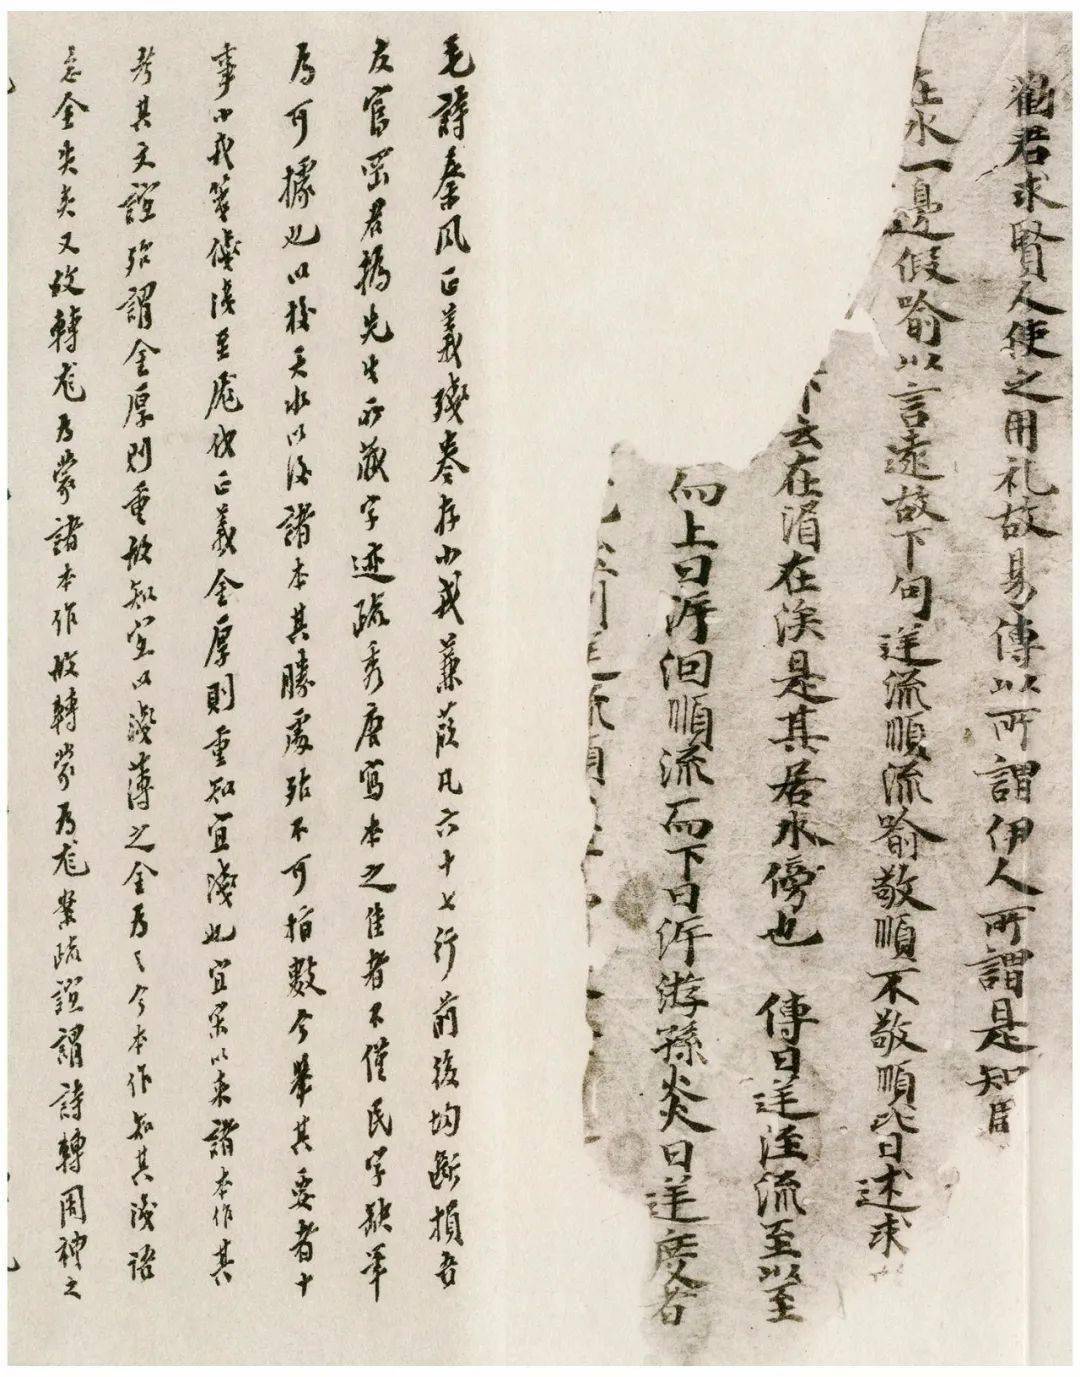 勸君求賢人使之用礼故易傳以所謂伊人所謂是知
在水一邊假喻以言遠故下句逆流順流喻敬順不敬順此曰述求
下云在湄在涘是其居水傍也 傳曰逆洭流至以至
而上曰泝洄順流而下曰泝游孫炎曰逆度者
毛詩秦風正義殘卷存小戎蒹葭凡六十七行前後均斷損吾
友富岡君撝先生所藏字迹疏秀唐寫本之佳者不僅民字缺筆
為可據也以校天水以後諸本其勝處殆不可指數今舉其要者十
事小戎箋俴淺至厖伐正義金厚則重知宜淺也宜宋以來諸本作其
考其文誼殆謂金厚則重故知宜以淺薄之金為之今本作知其淺語
意全失矣又故轉尨為蒙諸本作故轉蒙為尨案疏誼謂詩轉周禮之